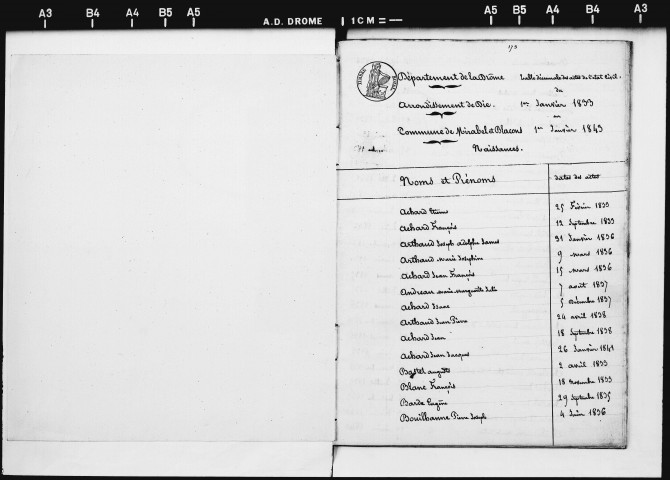 A3 B4 A4 B5 A5 A.D. DROME 1CM = A5 B5 A4 B4 A3
173
Département de la Drôme Table décennale des actes de l'état civil.
du
Arrondissement de Die. 1er Janvier 1833
au
Commune de Mirabel et Blacons 1er Janvier 1843
Naissances.
Noms et Prénoms dates des actes
Achard Etienne 25 Février 1833
Achard François 12 Septembre 1833
Arthaud Joseph Adolphe James 31 Janvier 1836
Arthaud Marie Joséphine 9 mars 1836
Achard Jean François 15 mars 1836
Andreau Marie Marguerite 7 août 1837
Achard Isaac 5 Décembre 1837
Arthaud Jean Pierre 24 avril 1838
Achard Jean 18 Septembre 1838
Achard Jean Jacques 26 Janvier 1841
Bastet auguste 2 avril 1833
Blanc François 18 novembre 1833
Barde Eugène 29 Septembre 1835
Bouilhanne Pierre Joseph 4 Juin 1836